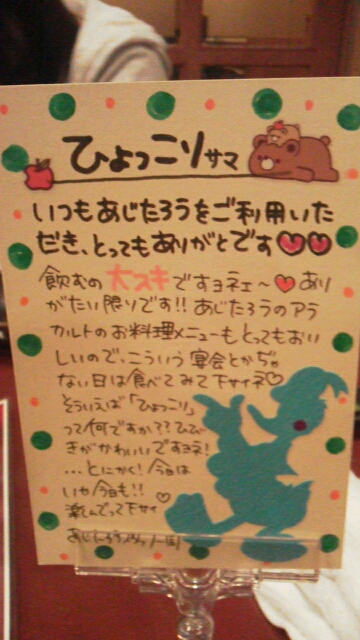 ひょっこりサマ
いつもあじたろうをご利用いた
だき、とってもありがとです
飲むの大スキですョネェ～ あり
がたい限りです!! あじたろうのアラ
カルトのお料理メニューもとってもおい
しいので、こういう宴会とかぢゃ
ない日は食べてみて下サイネ
そういえば「ひょっこり」
って何ですか?? ひび 
きがかわいいですョネ!
…とにかく! 今日は
いや今日も!!
楽しんでって下サイ
あじたろうスタッフ一同